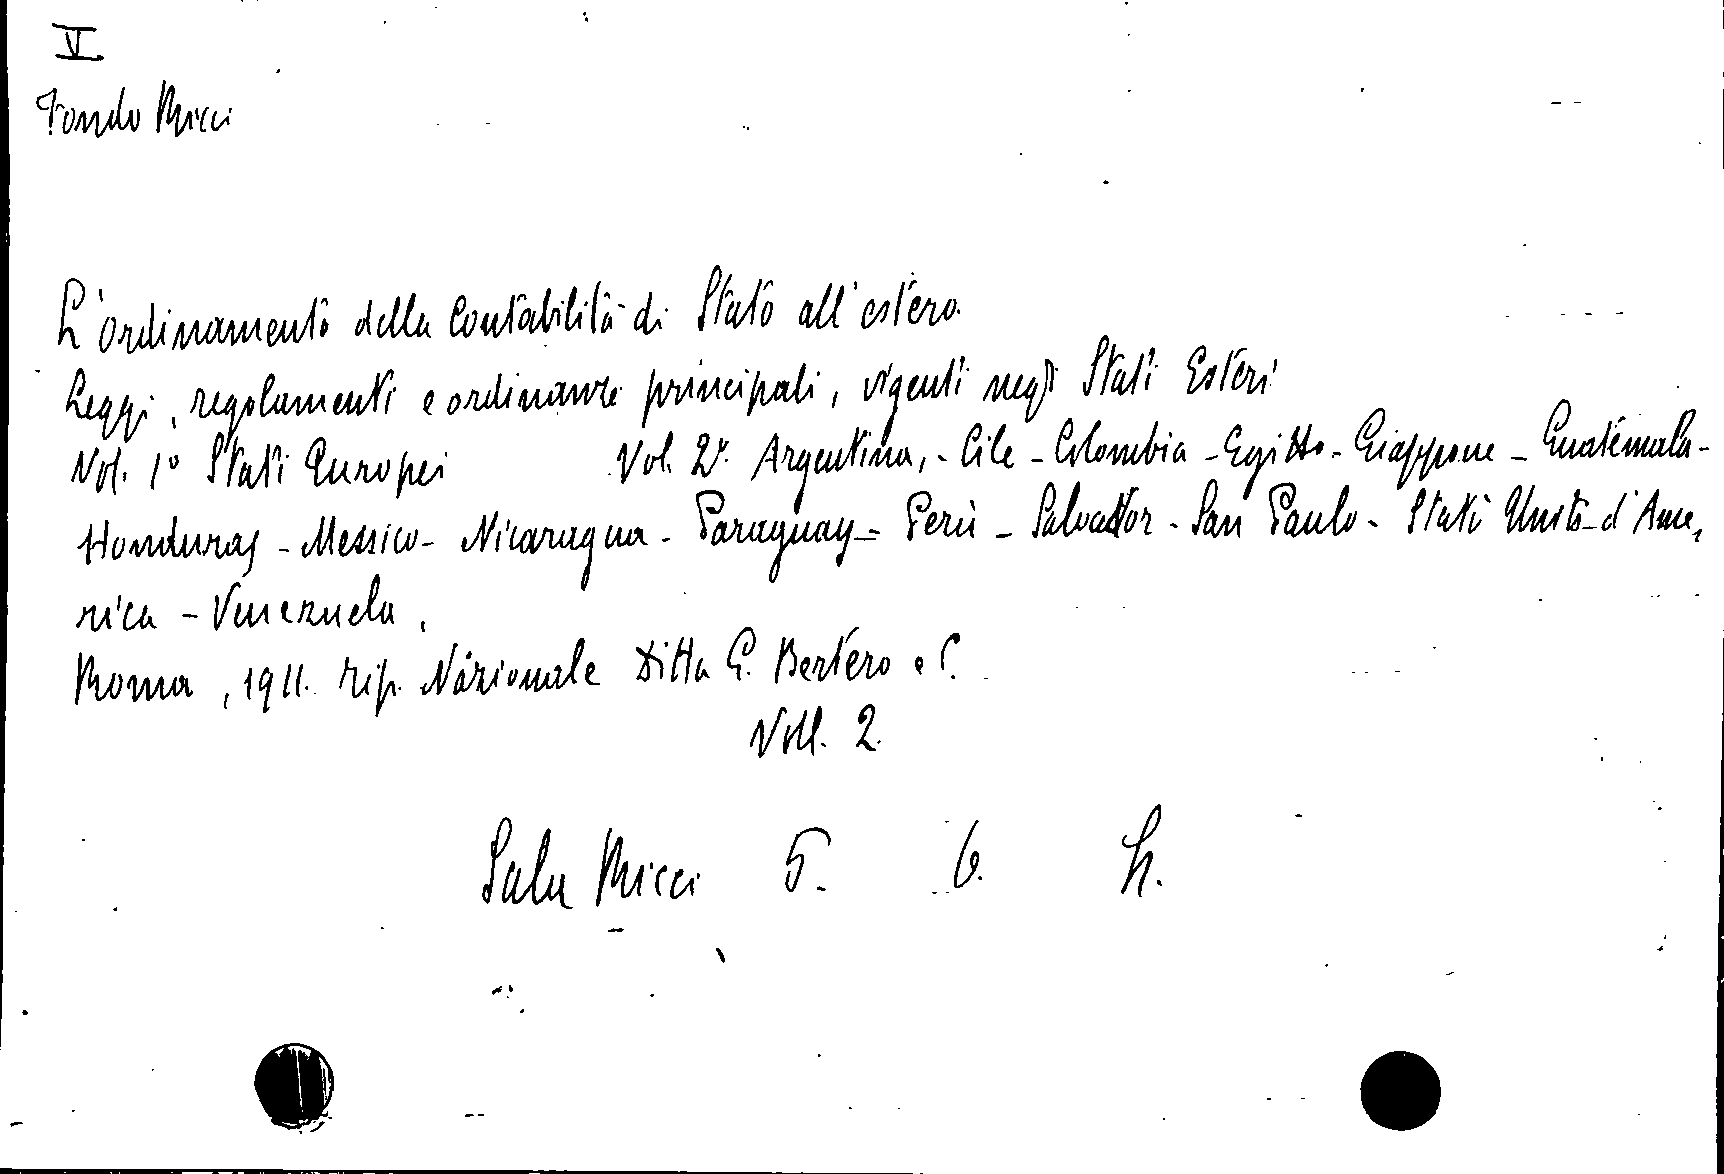 V
Fondo Ricci
L'Ordinamento della Contabilità di Stato all'estero.
Leggi, regolamenti e ordinanze principali, vigenti negli Stati Esteri
Vol. 1º Stati Europei Vol. 2º. Argentina, - Cile - Colombia - Egitto - Giappone - Guatemala -
Honduras - Messico - Nicaragua - Paraguay - Perù - Salvador - San Paulo - Stati Uniti d'Ame,
rica - Venezuela.
Roma, 1911. Tip. Nazionale Ditta G. Bertero e C.
Voll. 2.
Sala Ricci 5. 6. h.